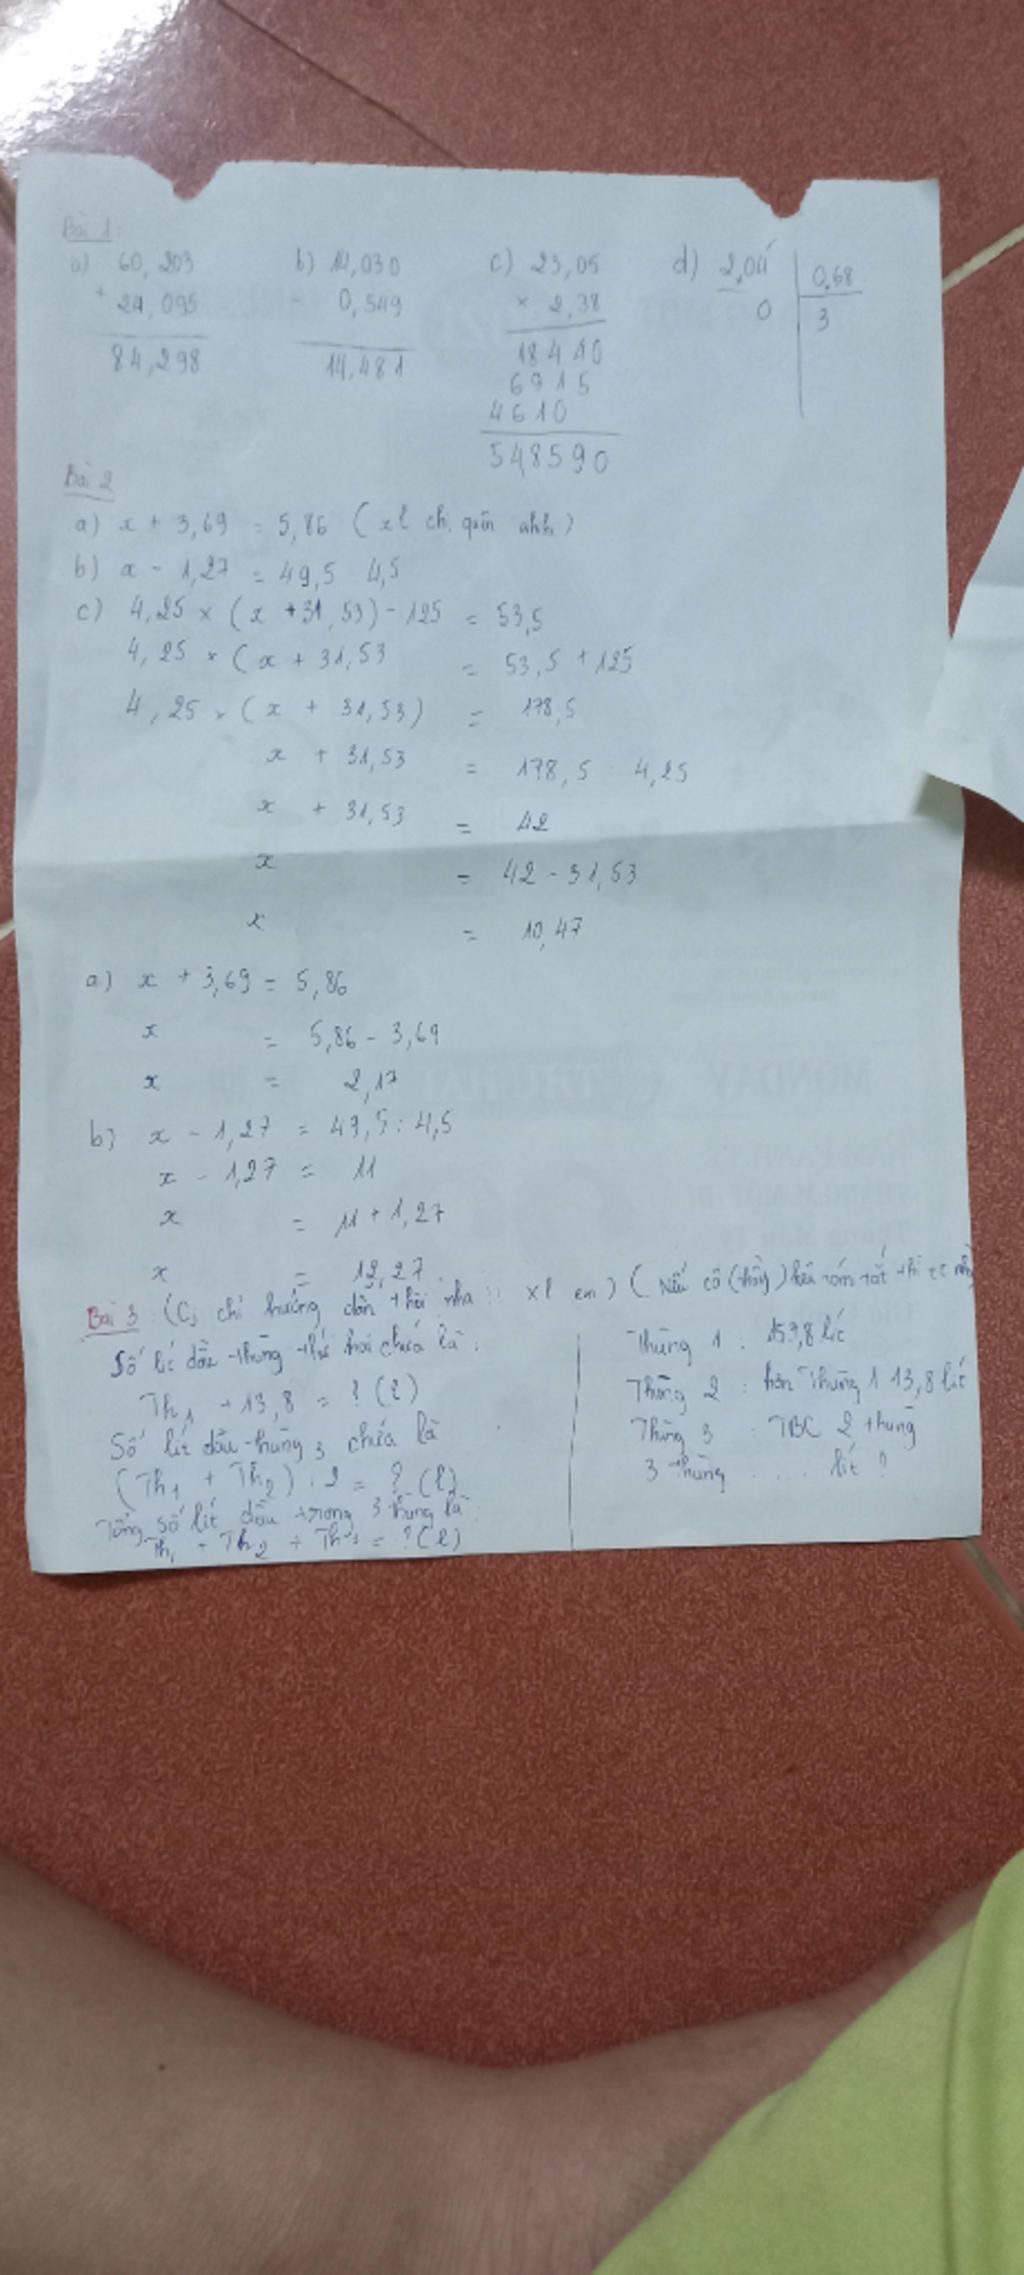 Bài 1:
a) 60,203
+ 24,095
84,298
b) 14,030
- 0,549
14,481
c) 23,05
× 2,38
18440
6915
4610
54,8590
d) 2,04 0,68
0 3
Bài 2
a) x + 3,69 = 5,86 (xl chị quên ahh)
b) x - 1,27 = 49,5 4,5
c) 4,25 × (x + 31,53) - 125 = 53,5
4,25 × (x + 31,53 = 53,5 + 125
4,25 × (x + 31,53) = 178,5
x + 31,53 = 178,5 4,25
x + 31,53 = 42
x = 42 - 31,53
x = 10,47
a) x + 3,69 = 5,86
x = 5,86 - 3,69
x = 2,17
b) x - 1,27 = 49,5 : 4,5
x - 1,27 = 11
x = 11 + 1,27
x = 12,27
Bài 3: (C, chỉ hướng dẫn thôi nha xl em) (Nếu cô (thầy) kêu tóm tắt thì
Số lít dầu thùng thứ hai chứa là:
Th1 + 13,8 = ? (l)
Số lít dầu thùng 3 chứa là
(Th1 + Th2) : 2 = ? (l)
Tổng số lít dầu trong 3 thùng là
Th1 + Th2 + Th3 = ? (l)
Thùng 1 : 157,8 lít
Thùng 2 : hơn Thùng 1 13,8 lít
Thùng 3 : TBC 2 thùng
3 thùng .... lít ?